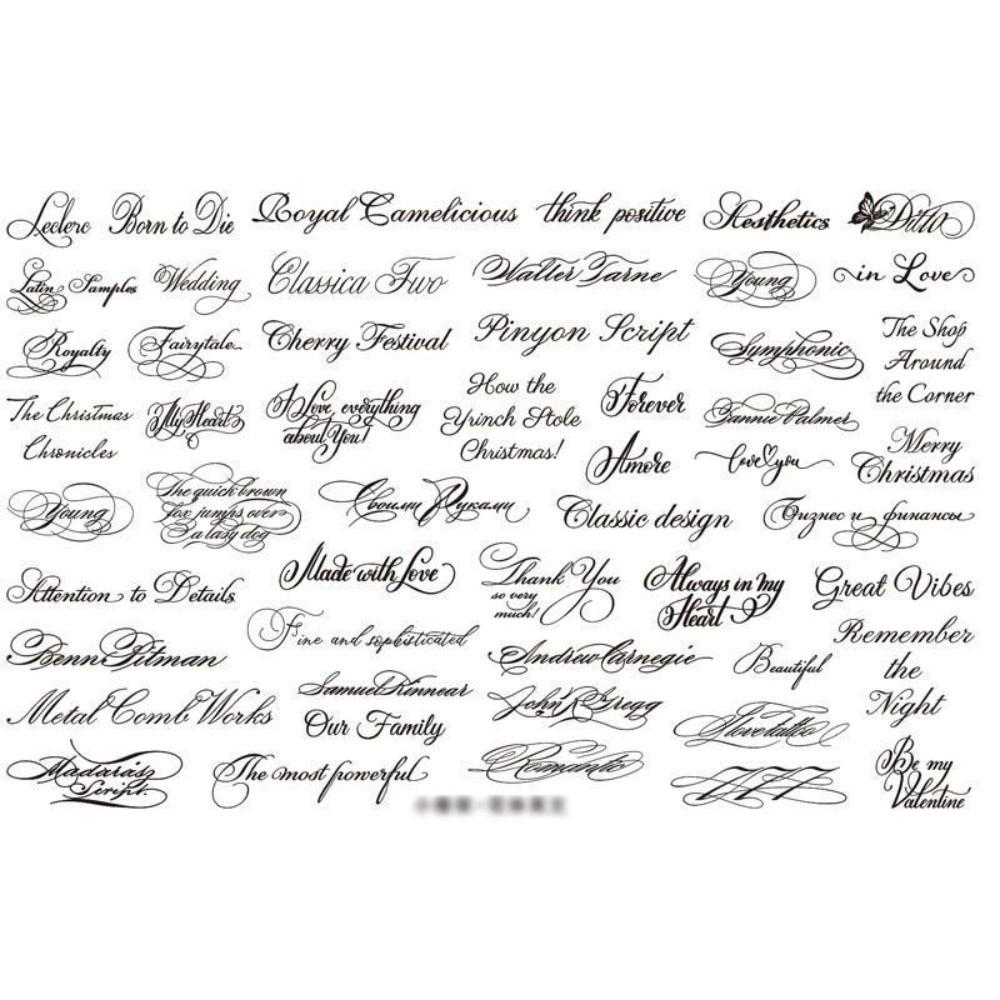 Leclerc
Born to Die
Royal Camelicious
think positive
Aesthetics
Latin Samples
Wedding
Classica Two
Walter Tarne
Young
in Love
Royalty
Fairytale
Cherry Festival
Pinyon Script
Symphonic
The Shop
Around
the Corner
The Christmas
Chronicles
My Heart
I Love everything
about You!
How the
Yrinch Stole
Christmas!
Forever
Fannie Palmer
Amore
love you
Merry
Christmas
Young
The quick brown
fox jumps over
a lazy dog
Своими Руками
Classic design
Бизнес и финансы
Attention to Details
Made with Love
Thank You
so very
much!
Always in my
Heart
Great Vibes
Fine and sophisticated
Benn Pitman
Andrew Carnegie
Beautiful
Remember
the
Night
Metal Comb Works
Samuel Kinnear
Our Family
John R Gregg
I love tattoo
Madarász
Script.
The most powerful
Romantic
777
Be my
Valentine